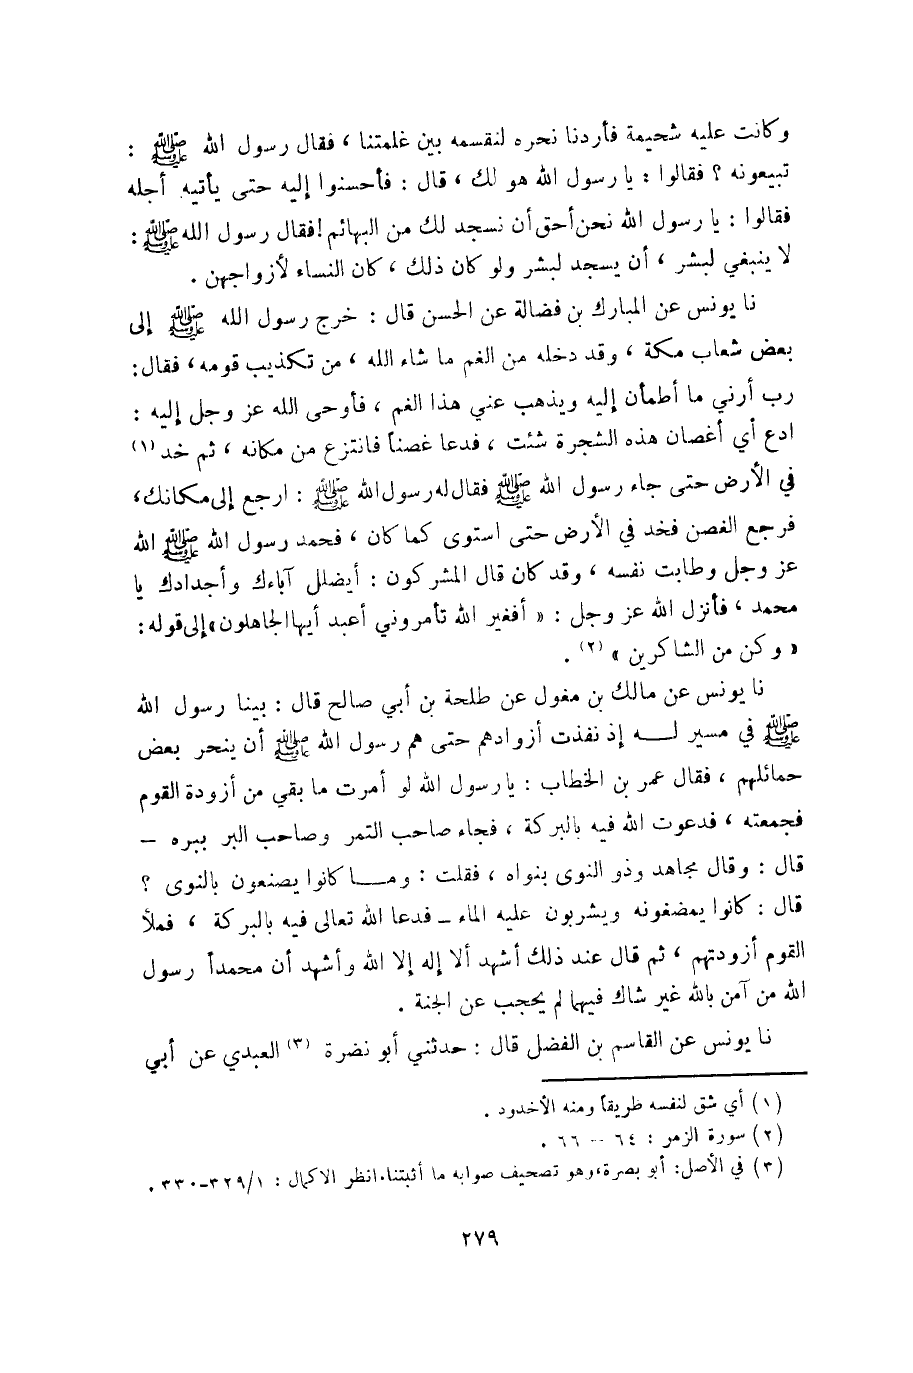 وكانت عليه شحيمة فأردنا نحره لنقسمه بين غلمتنا ، فقال رسول الله ﷺ :
تبيعونه ؟ فقالوا : يا رسول الله هو لك ، قال : فأحسنوا إليه حتى يأتيه أجله
فقالوا : يا رسول الله نحن أحق أن نسجد لك من البهائم ! فقال رسول الله ﷺ :
لا ينبغي لبشر ، أن يسجد لبشر ولو كان ذلك ، كان النساء لأزواجهن .
نا يونس عن المبارك بن فضالة عن الحسن قال : خرج رسول الله ﷺ إلى
بعض شعاب مكة ، وقد دخله من الغم ما شاء الله ، من تكذيب قومه ، فقال :
رب أرني ما أطمأن إليه ويذهب عني هذا الغم ، فأوحى الله عز وجل إليه :
ادع أي أغصان هذه الشجرة شئت ، فدعا غصناً فانتزع من مكانه ، ثم خد (١)
في الأرض حتى جاء رسول الله ﷺ فقال له رسول الله ﷺ : ارجع إلى مكانك ،
فرجع الغصن فخد في الأرض حتى استوى كما كان ، فحمد رسول الله ﷺ الله
عز وجل وطابت نفسه ، وقد كان قال المشركون : أيضلل آباءك وأجدادك يا
محمد ، فأنزل الله عز وجل : « أفغير الله تأمروني أعبد أيها الجاهلون » إلى قوله :
« وكن من الشاكرين » (٢) .
نا يونس عن مالك بن مغول عن طلحة بن أبي صالح قال : بينا رسول الله
ﷺ في مسير لــه إذ نفذت أزوادهم حتى هم رسول الله ﷺ أن ينحر بعض
حمائلهم ، فقال عمر بن الخطاب : يا رسول الله لو أمرت ما بقي من أزودة القوم
فجمعته ، فدعوت الله فيه بالبركة ، فجاء صاحب التمر وصاحب البر ببره –
قال : وقال مجاهد وذو النوى بنواه ، فقلت : ومــا كانوا يصنعون بالنوى ؟
قال : كانوا يمضغونه ويشربون عليه الماء – فدعا الله تعالى فيه بالبركة ، فملأ
القوم أزودتهم ، ثم قال عند ذلك أشهد ألا إله إلا الله وأشهد أن محمداً رسول
الله من آمن بالله غير شاك فيهما لم يحجب عن الجنة .
نا يونس عن القاسم بن الفضل قال : حدثني أبو نضرة (٣) العبدي عن أبي
(١) أي شق لنفسه طريقاً ومنه الأخدود .
(٢) سورة الزمر : ٦٤ – ٦٦ .
(٣) في الأصل : أبو بصرة ، وهو تصحيف صوابه ما أثبتنا . انظر الاكمال : ٣٢٩/١-٣٣٠ .
٢٧٩